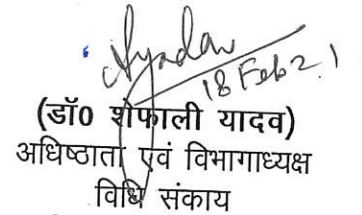 Ayadav
18 Feb 21
(डॉ0 शेफाली यादव)
अधिष्ठाता एवं विभागाध्यक्ष
विधि संकाय